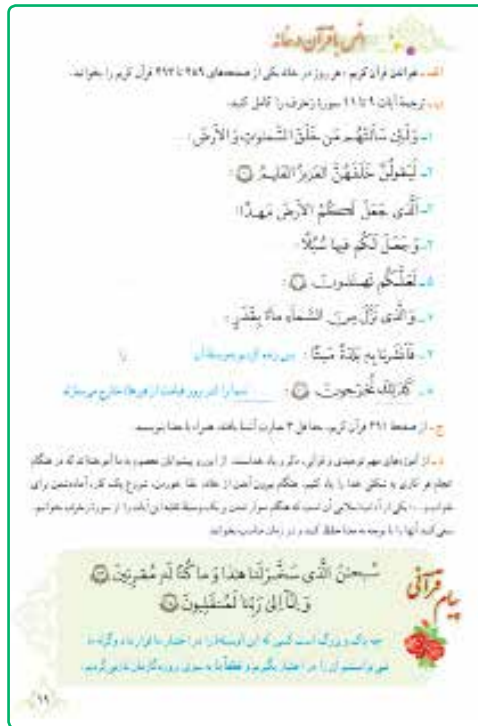 انس با قرآن در خانه
الف ـ خواندن قرآن کریم: هر روز در خانه یکی از صفحه‌های ۴۸۹ تا ۴۹۳ قرآن کریم را بخوانید.
ب ـ ترجمهٔ آیات ۹ تا ۱۱ سورهٔ زخرف را کامل کنید.
۱ـ وَ لَئِن سَأَلتَهُم مَن خَلَقَ السَّماواتِ وَ الاَرضَ:
۲ـ لَیَقولُنَّ خَلَقَهُنَّ العَزیزُ العَلیمُ:
۳ـ اَلَّذی جَعَلَ لَکُمُ الاَرضَ مَهدًا:
۴ـ وَ جَعَلَ لَکُم فیها سُبُلًا:
۵ـ لَعَلَّکُم تَهتَدونَ:
۶ـ وَ الَّذی نَزَّلَ مِنَ السَّماءِ ماءً بِقَدَرٍ:
۷ـ فَاَنشَرنا بِه بَلدَةً مَیتًا: پس زنده کردیم به‌وسیلهٔ آن را
۸ـ کَذٰلِکَ تُخرَجونَ: شما را (در روز قیامت از قبرها) خارج می‌سازند
ج ـ از صفحهٔ ۴۹۱ قرآن کریم، حداقل ۳ عبارت آشنا یافته، همراه با معنا بنویسید.
د ـ از آموزه‌های مهم توحیدی و قرآنی، ذکر و یاد خداست. از این‌رو پیشوایان معصوم به ما آموخته‌اند که در هنگام
انجام هر کاری به شکلی خدا را یاد کنیم. هنگام بیرون آمدن از خانه، غذا خوردن، شروع یک کار، آماده شدن برای
خواب و ... یکی از آداب اسلامی آن است که هنگام سوار شدن بر یک وسیلهٔ نقلیه این آیات را از سورهٔ زخرف بخوانیم.
سعی کنید آنها را با توجه به معنا حفظ کنید و در زمان مناسب بخوانید.
پیام قرآنی
سُبحانَ الَّذی سَخَّرَ لَنا هٰذا وَ ما کُنّا لَهُ مُقرِنینَ
وَ اِنّا اِلیٰ رَبِّنا لَمُنقَلِبونَ
چه پاک و بزرگ است کسی که این (وسیله) را در اختیار ما قرار داد وگرنه ما
نمی‌توانستیم آن را در اختیار بگیریم و قطعاً ما به سوی پروردگارمان بازمی‌گردیم.
۱۹